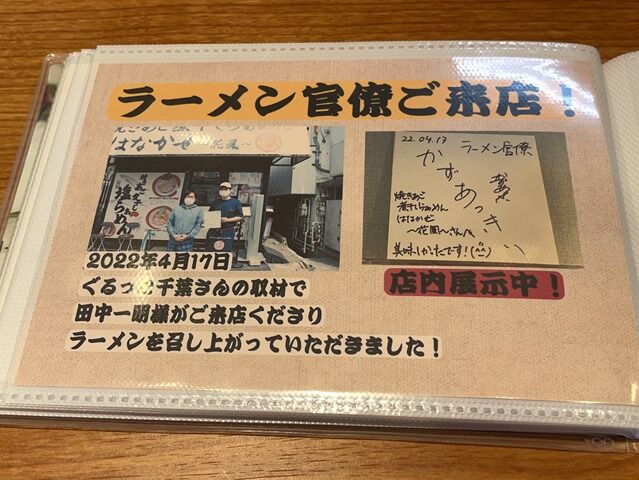 ラーメン官僚ご来店！
はなかぜ 〜花風〜
塩らぁめん
22.04.17 ラーメン官僚
かずあっきぃ
焼きあご
煮干しらぁめん
はなかぜ
〜花風〜さんへ
美味しかったです！(^^)
2022年4月17日
ぐるっと千葉さんの取材で
田中一明様がご来店くださり
ラーメンを召し上がっていただきました！
店内展示中！